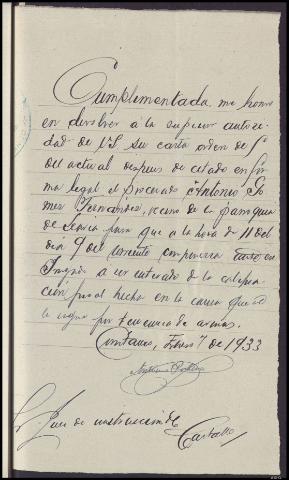 Cumplementada, me honro
en devolver á la superior autori-
dad de V.S. su carta orden de 1º
del actual despues de citado en for-
ma legal el procesado Antonio Gó-
mez Fernandez, vecino de la parroquia
de para que a la hora de 11 del
dia 9 del corriente comparezca ante ese
Juzgado a ser enterado de la
ción fiscal hecha en la causa que se
le sigue por tenencia de armas.
Febrero 7 de 1933
Antonio
Sr. Juez de instrucción de